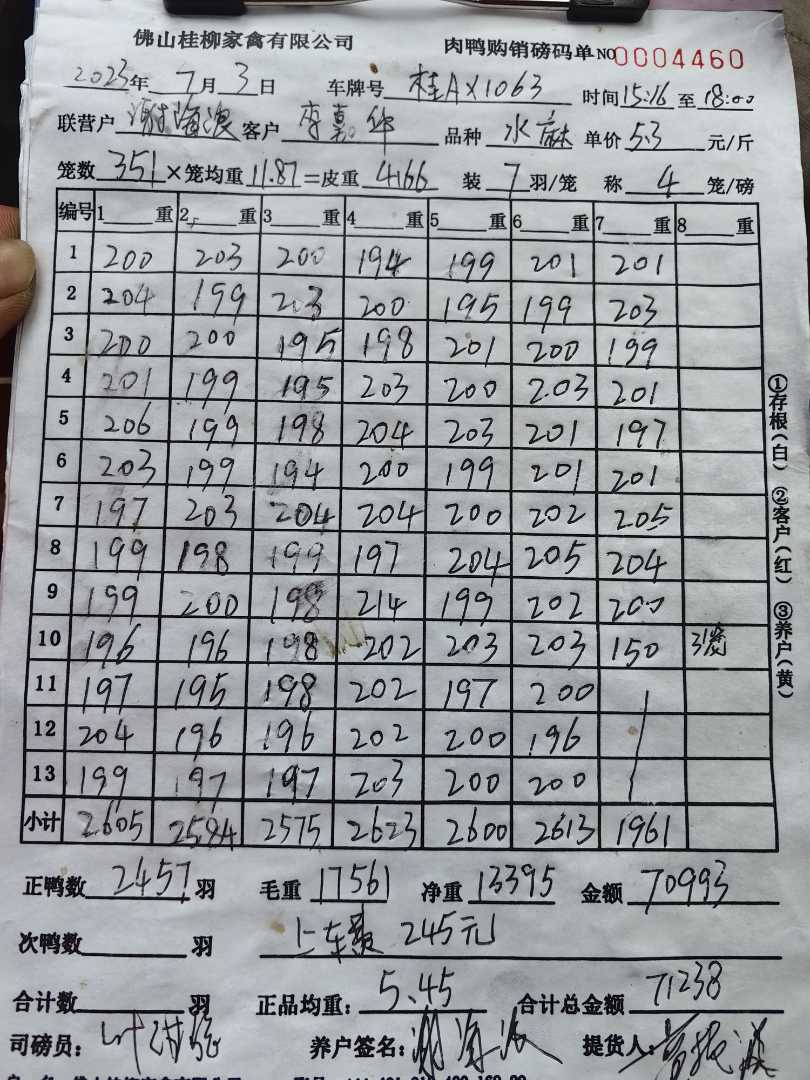 佛山桂柳家禽有限公司 肉鸭购销磅码单 NO 0004460
2023年 7月 3日 车牌号 桂AX1063 时间 15:16 至 18:00
联营户 谢海浪 客户 李嘉华 品种 水麻 单价 5.3 元/斤
笼数 351 ×笼均重 11.87 =皮重 4166 装 7 羽/笼 称 4 笼/磅
编号 1 重 2 重 3 重 4 重 5 重 6 重 7 重 8 重
1 200 203 200 194 199 201 201
2 204 199 203 200 195 199 203
3 200 200 195 198 201 200 199
4 201 199 195 203 200 203 201
5 206 199 198 204 203 201 197
6 203 199 194 200 199 201 201
7 197 203 204 204 200 202 205
8 199 198 199 197 204 205 204
9 199 200 198 214 199 202 200
10 196 196 198 202 203 203 150 3笼
11 197 195 198 202 197 200
12 204 196 196 202 200 196
13 199 197 197 203 200 200
小计 2605 2584 2575 2623 2600 2613 1961
正鸭数 2457 羽 毛重 17561 净重 13395 金额 70993
次鸭数 羽 上车费 245元
合计数 羽 正品均重: 5.45 合计总金额 71238
司磅员: 叶 养户签名: 谢海浪 提货人:
①存根(白) ②客户(红) ③养户(黄)